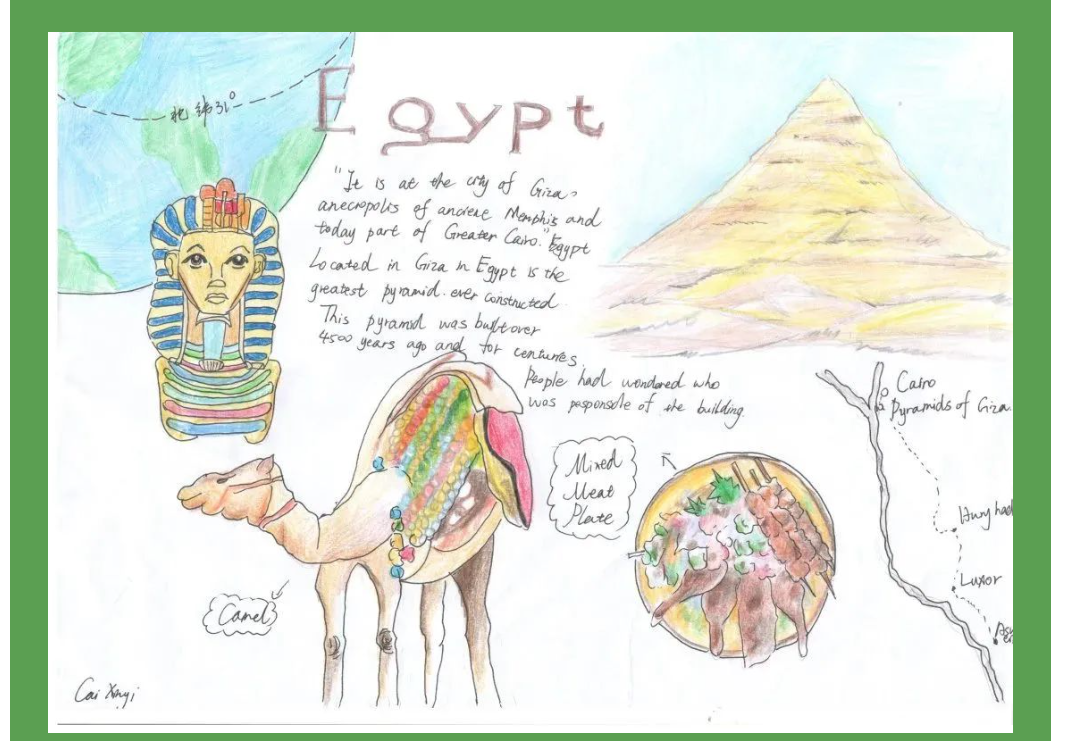 北纬31°
Egypt
"It is at the city of Giza.
anecropolis of anciene Memphis and
today part of Greater Cairo." Egypt
Located in Giza in Egypt is the
greatest pyramid ever constructed.
This pyramid was built over
4500 years ago and for centuries.
People had wondered who
was of the building.
Cairo
Pyramids of Giza
Luxor
Mixed
Meat
Plate
Camel
Cai Xinyi